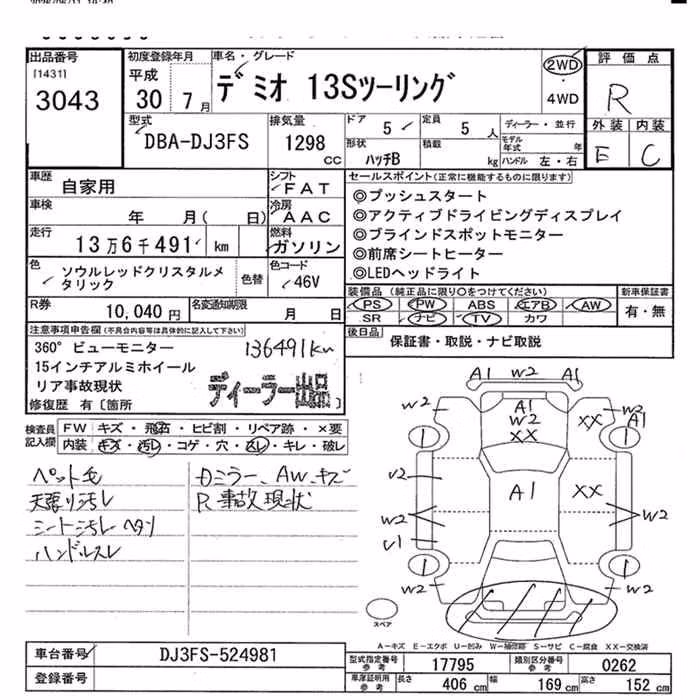 出品番号
[1431]
3043
初度登録年月
平成
30年 7月
車名・グレード
デミオ 13Sツーリング
2WD
・
4WD
評価点
R
外装 内装
E C
型式
DBA-DJ3FS
排気量
1298
CC
ドア 5
定員 5 人
形状
ハッチB
積載 kg
ディーラー・並行
モデル年式 年
ハンドル 左・右
車歴
自家用
シフト
FAT
車検
年 月( 日)
冷房
AAC
走行
13万6千491 km
燃料
ガソリン
色
ソウルレッドクリスタルメタリック
色替
色コード
46V
R券
10,040円
名変通知期限
月 日
セールスポイント(正常に機能するものに限ります)
◎プッシュスタート
◎アクティブドライビングディスプレイ
◎ブラインドスポットモニター
◎前席シートヒーター
◎LEDヘッドライト
装備品 (純正品に限り○をつけてください)
PS PW ABS エアB AW
SR ナビ TV カワ
新車保証書
有・無
後日品
保証書・取説・ナビ取説
注意事項申告欄(不具合内容等は具体的に記入して下さい)
360°ビューモニター
136491km
15インチアルミホイール
リア事故現状
ディーラー出品
修復歴 有〔箇所
検査員記入欄
FW キズ・飛石・ヒビ割・リペア跡・×要
内装 キズ・汚レ・コゲ・穴・スレ・キレ・破レ
ペット毛
天張り汚レ
シート汚レ ヘタリ
ハンドルスレ
カミラー、AWキズ
R事故現状
A1 W2 A1
W2 A1 W2 XX XX W2 A1
1 1
U2 A1 XX
W2 W2
U1
1 1
W2 W2
スペア
A−キズ E−エクボ U−凹み W−補修跡 S−サビ C−腐食 XX−交換済
車台番号
DJ3FS-524981
登録番号
型式指定番号 参考
17795
類別区分番号 参考
0262
車庫証明用 参考
長さ 406 cm
幅 169 cm
高さ 152 cm